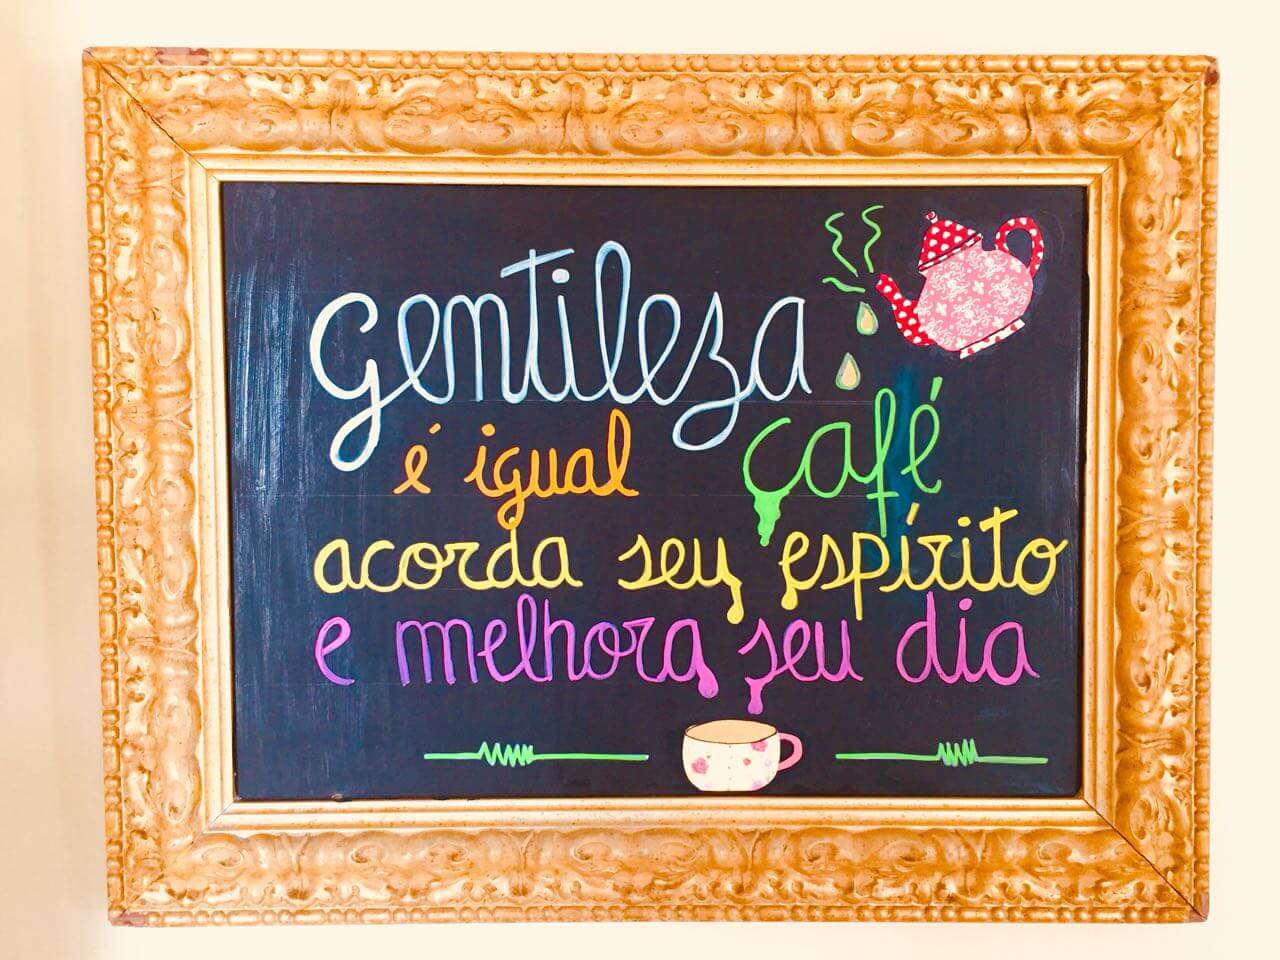 gentileza
é igual café
acorda seu espírito
e melhora seu dia